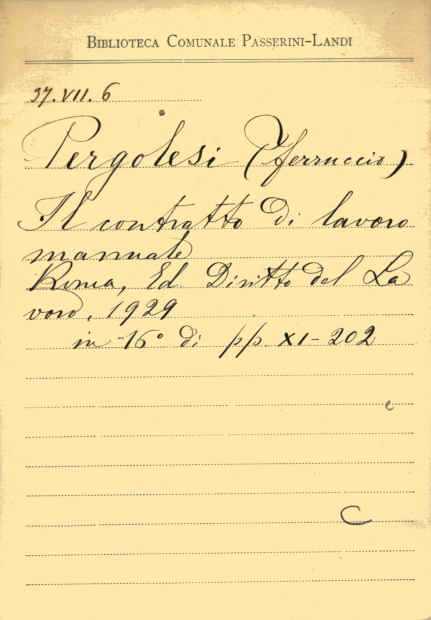 BIBLIOTECA COMUNALE PASSERINI-LANDI
37.VII.6
Pergolesi (Ferruccio)
Il contratto di lavoro
manuale
Roma, Ed. Diritto del La
voro, 1929
in -16° di pp. XI-202
c
C